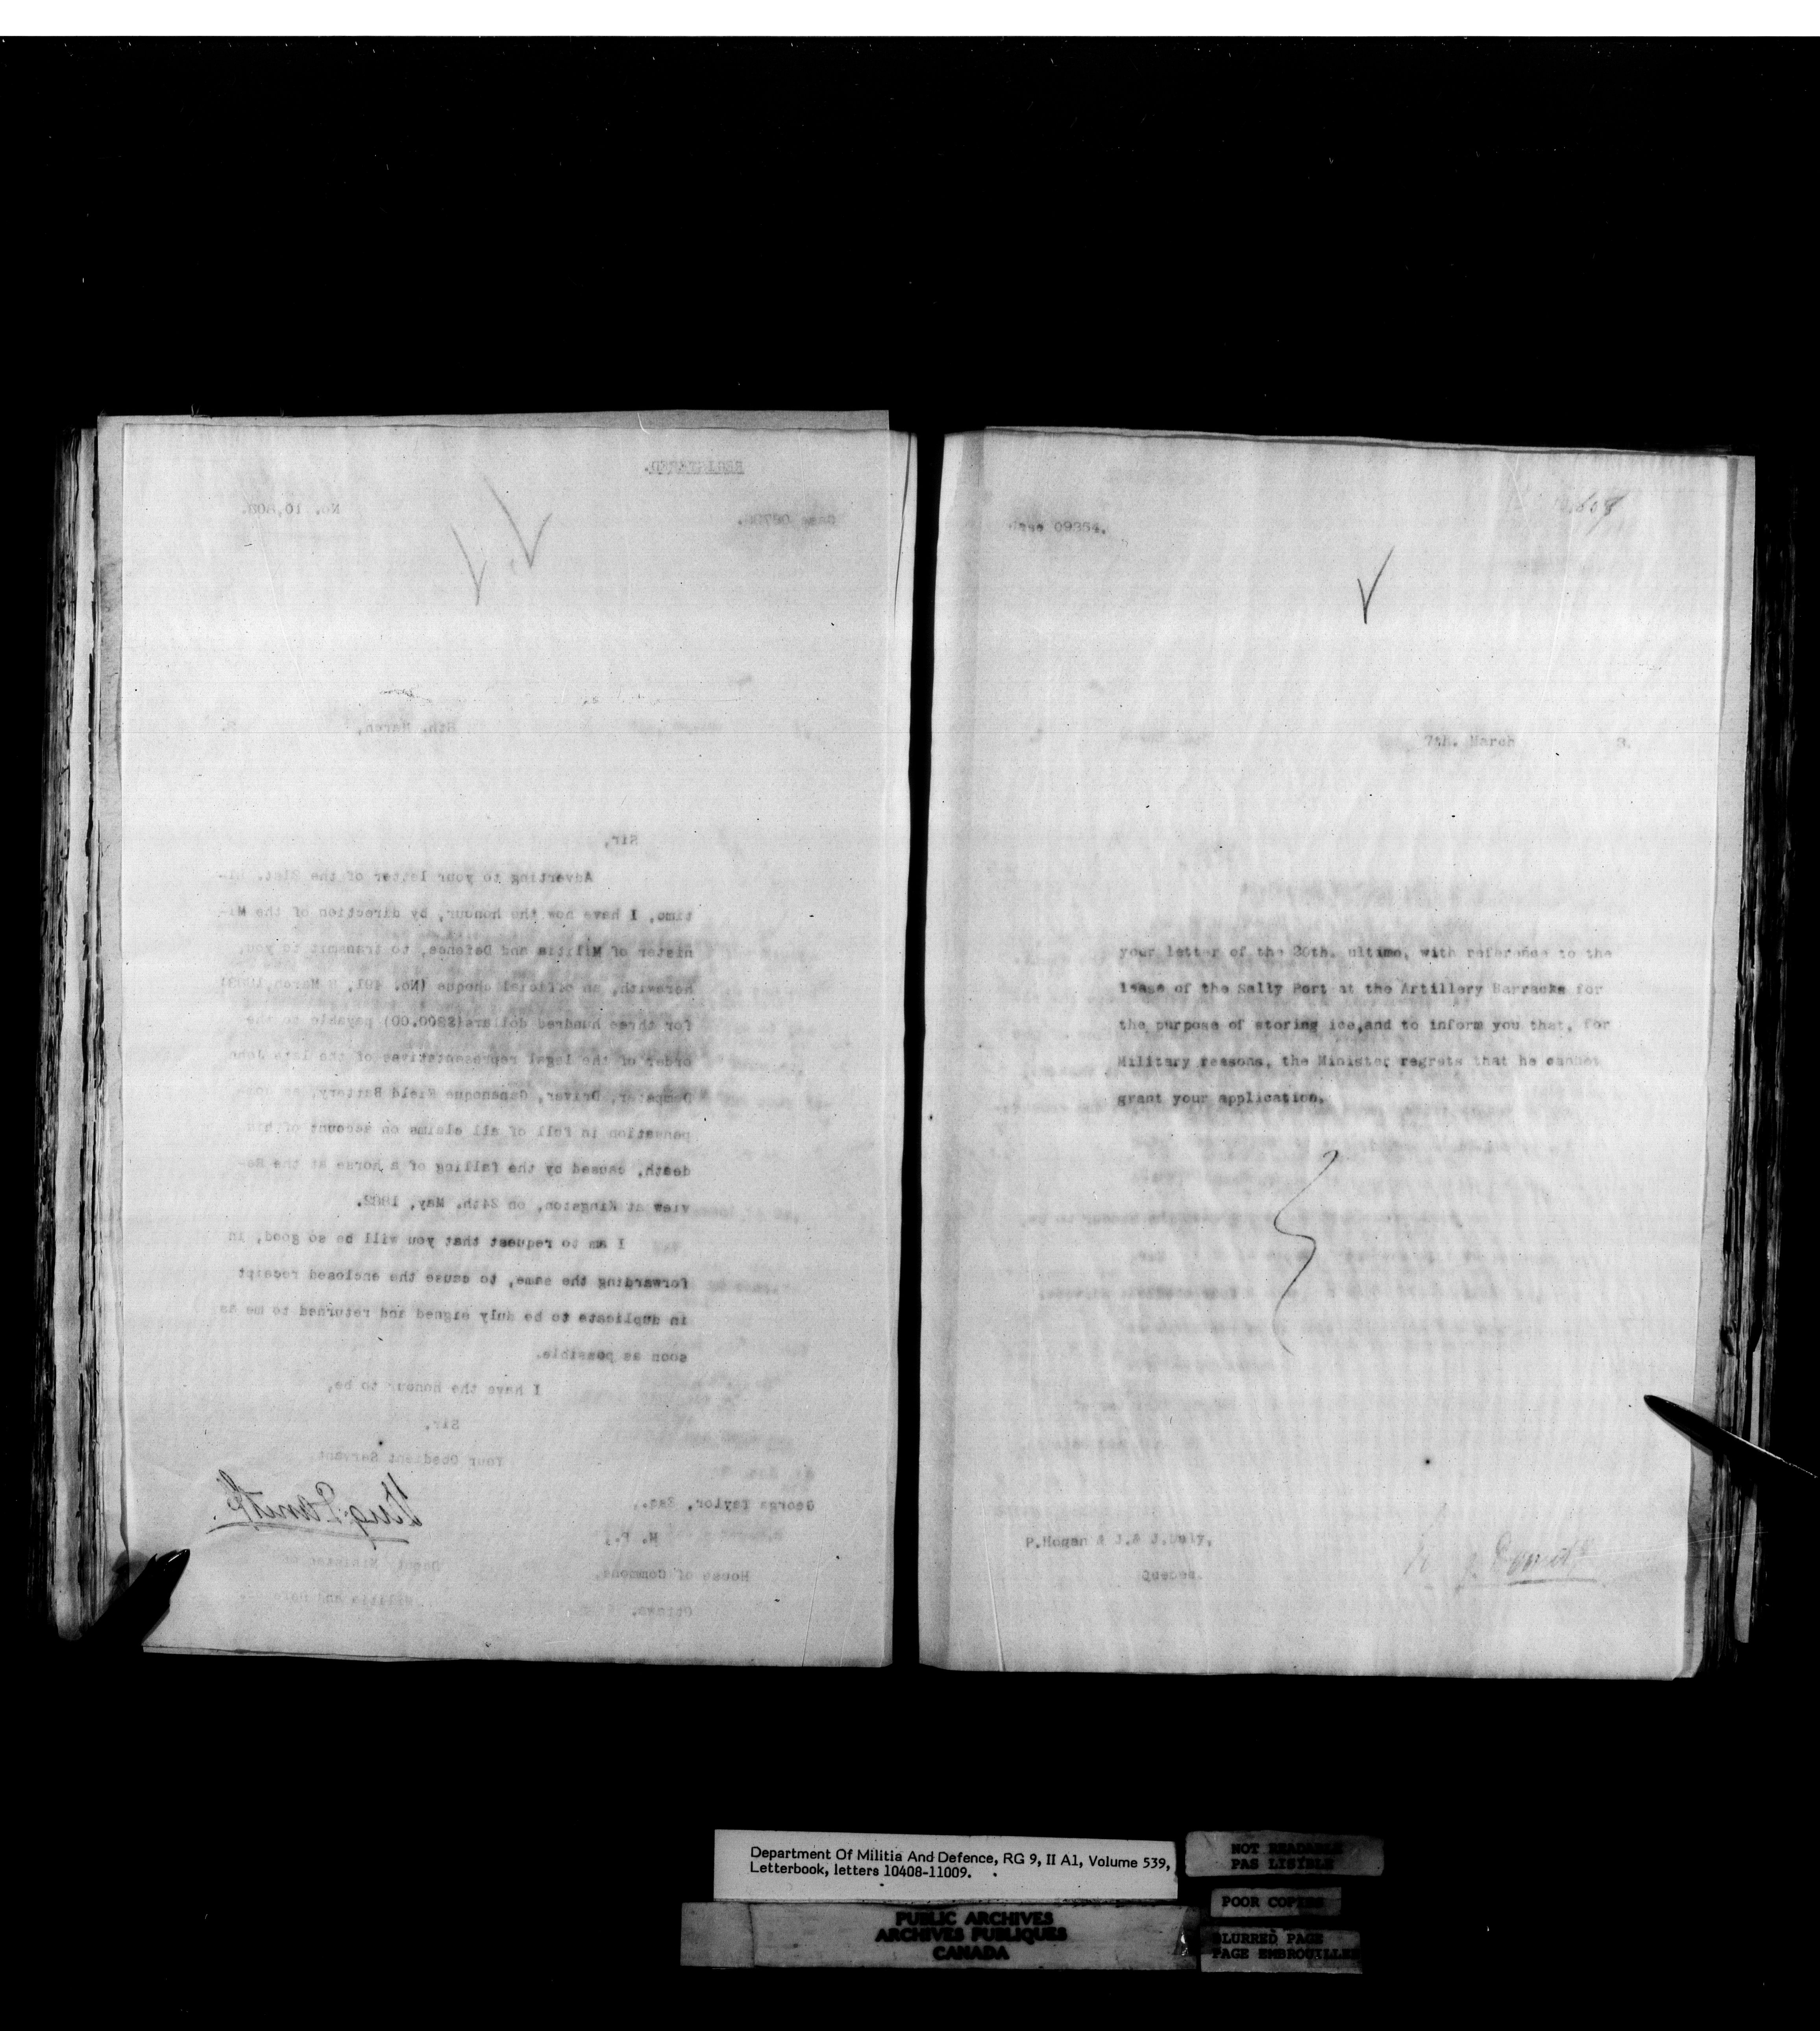 REGISTERED.
No. 10,802.
Case
8th. March,
Sir,
Adverting to your letter of the 21st. ul-
timo, I have now the honour, by direction of the Mi-
nister of Militia and Defence, to transmit to you,
herewith, an official cheque (No. 491, March,
for three hundred dollars payable to the
order of the legal representatives of the late John
Dempster, Driver, Gananoque Field Battery, as com-
pensation in full of all claims on account of his
death, caused by the falling of a horse at the Re-
view at Kingston, on 24th. May,
I am to request that you will be so good, in
forwarding the same, to cause the enclosed receipt
in duplicate to be duly signed and returned to me as
soon as possible.
I have the honour to be,
Sir,
Your Obedient Servant
George Taylor, Esq.,
M. P.,
House of Commons,
Ottawa.
Deputy Minister of
Militia and Defe
Case 09354.
7th. March 3.
your letter of the 20th. ultimo, with reference to the
lease of the Sally Port at the Artillery Barracks for
the purpose of storing ice,and to inform you that, for
Military reasons, the Minister regrets that he cannot
grant your application.
P.Hogan & J.& J.Daly,
Quebec.
Department Of Militia And Defence, RG 9, II A1, Volume 539,
Letterbook, letters 10408-11009.
PUBLIC ARCHIVES
ARCHIVES PUBLIQUES
CANADA
NOT READABLE
PAS LISIBLE
POOR COPIES
BLURRED PAGE
PAGE EMBROUILLEE